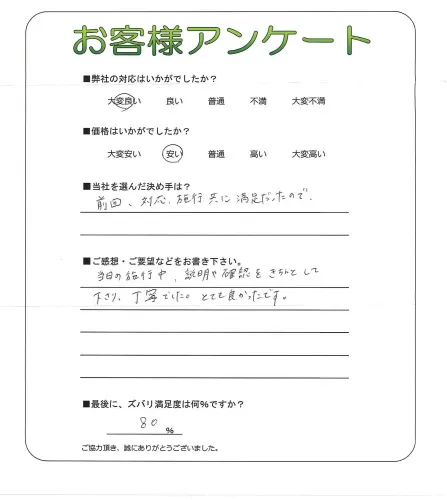 お客様アンケート
■弊社の対応はいかがでしたか？
大変良い 良い 普通 不満 大変不満
■価格はいかがでしたか？
大変安い 安い 普通 高い 大変高い
■当社を選んだ決め手は？
前回、対応、施行共に満足だったので、
■ご感想・ご要望などをお書き下さい。
当日の施行中、説明や確認をきちんとして
下さり、丁寧でした。とても良かったです。
■最後に、ズバリ満足度は何％ですか？
80 %
ご協力頂き、誠にありがとうございました。